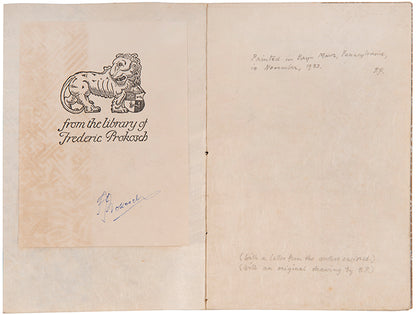 from the library of
Frederic Prokosch
Prokosch
Painted in Bryn Mawr, Pennsylvania,
in November, 1933.
F.P.
(With a letter from the author enclosed.)
(With an original drawing by F.P.)